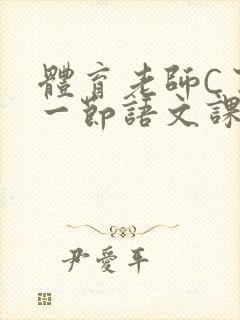 體育老師C
一節語文課
尹愛平